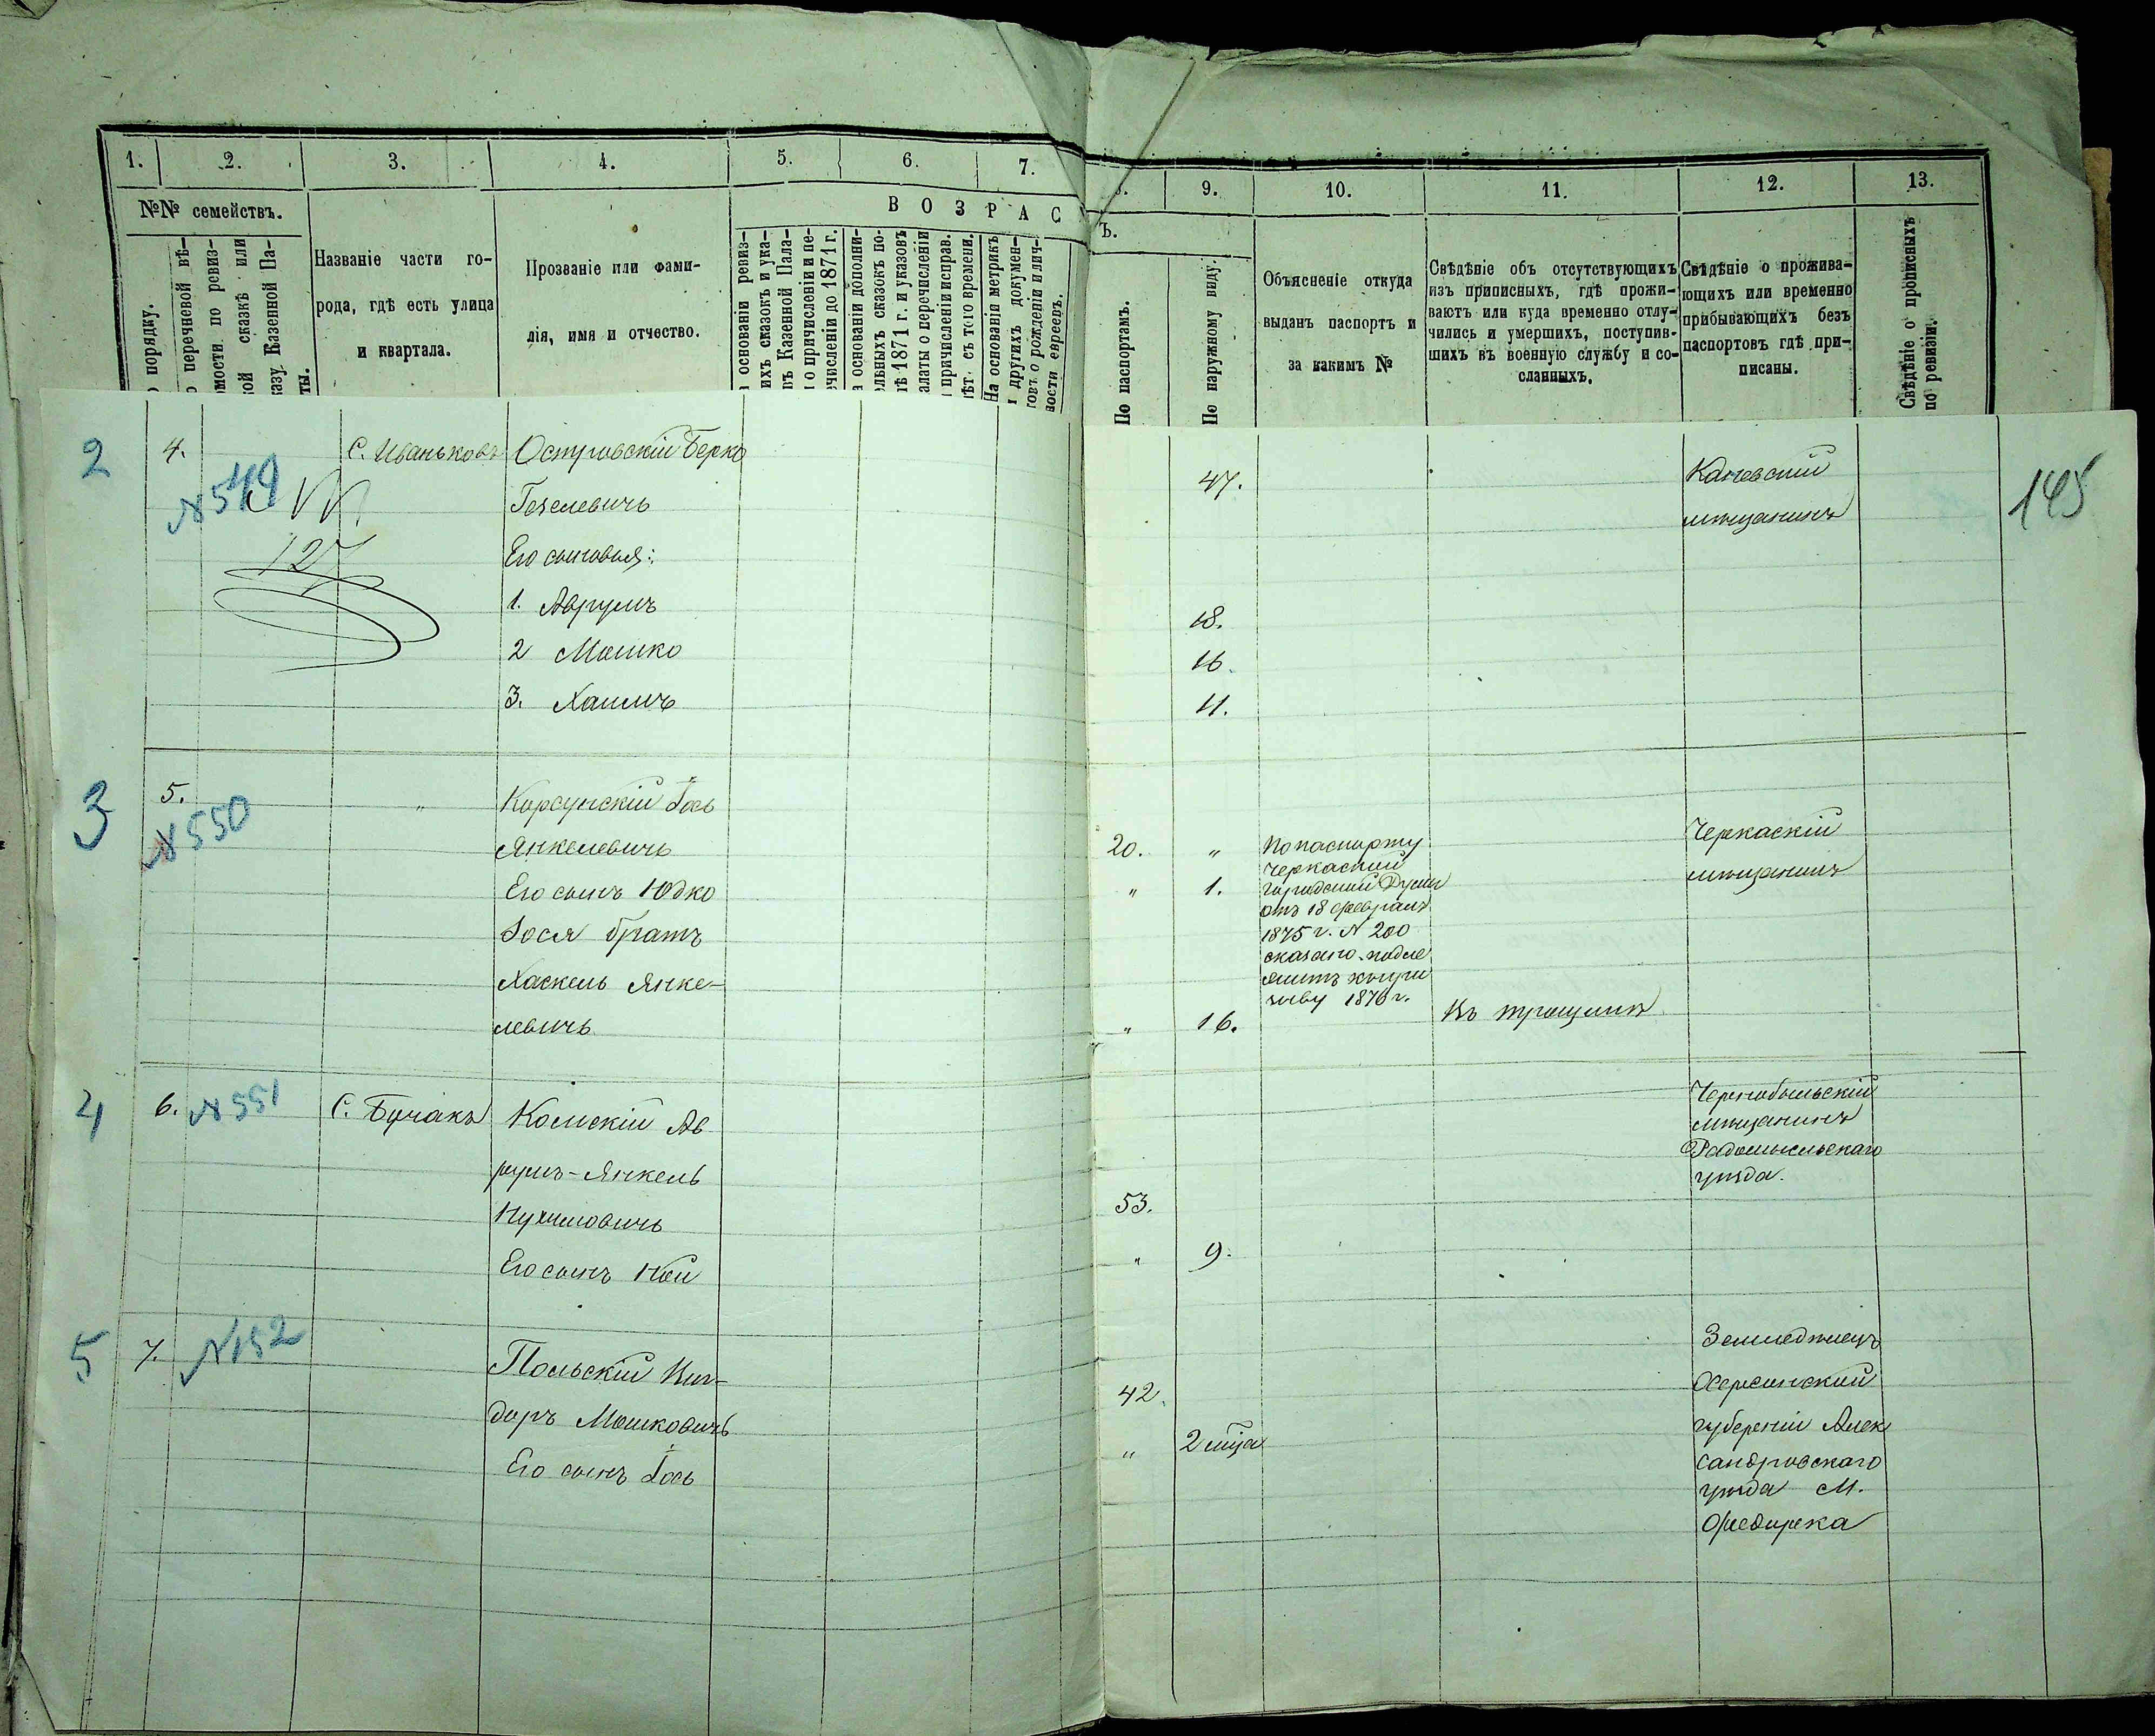 1. 2. 3. 4. 5. 6. 7.
9. 10. 11. 12. 13.
№№ семействъ.
порядку.
перечневой вѣ-
омости по ревиз-
кой сказкѣ или
казу Казенной Па-
ты.
Названіе части го-
рода, гдѣ есть улица
и квартала.
Прозваніе или фами-
лія, имя и отчество.
ВОЗРАС
Ъ.
основаніи ревиз-
ихъ сказокъ и ука-
въ Казенной Пала-
о причисленіи и пе-
ечисленіи до 1871 г.
основаніи дополни-
ельныхъ сказокъ по-
лѣ 1871 г. и указовъ
алаты о перечисленіи
причисленіи исправ.
лѣт. съ того времени.
На основаніи метрикъ
другихъ докумен-
товъ о рожденіи и лич-
ности евреевъ.
По паспортамъ.
По наружному виду.
Объясненіе откуда
выданъ паспортъ и
за какимъ №
Свѣдѣніе объ отсутствующихъ
изъ приписныхъ, гдѣ прожи-
ваютъ или куда временно отлу-
чились и умершихъ, поступив-
шихъ въ военную службу и со-
сланныхъ.
Свѣдѣніе о прожива-
ющихъ или временно
прибывающихъ безъ
паспортовъ гдѣ при-
писаны.
Свѣдѣніе о прописныхъ
по ревизіи.
2 4. С. Иваньковъ Островскій Берко
N 549
Гезелевичъ
127
Его сыновья:
1. Аврумъ
2 Мошко
3. Хаимъ
47. Каневскій
мѣщанинъ
145
18.
16.
11.
3 5. N 550 " Корсунскій Іось
Янкелевичъ
Его сынъ Юдко
Іося братъ
Хаскель Янке-
левичъ
20. " По паспорту
Черкаской
" 1. городской Думы
отъ 18 февраля
1875 г. N 200
сказано подле
житъ къ при
зыву 1876 г.
Черкаскій
мѣщанинъ
" 16. Въ трощинѣ
4 6. N 551 С. Бучакъ Комскій Ав
румъ-Янкель
Нухимовичъ
Его сынъ Ной
Чернобыльскій
мѣщанинъ
Радомысльскаго
уѣзда.
53.
" 9.
5 7. N 152 Польскій Киз-
доръ Мошковичъ
Его сынъ Іось
42.
" 2 мца
Земледѣлецъ
Херсонской
губерніи Алек
сандровскаго
уѣзда М.